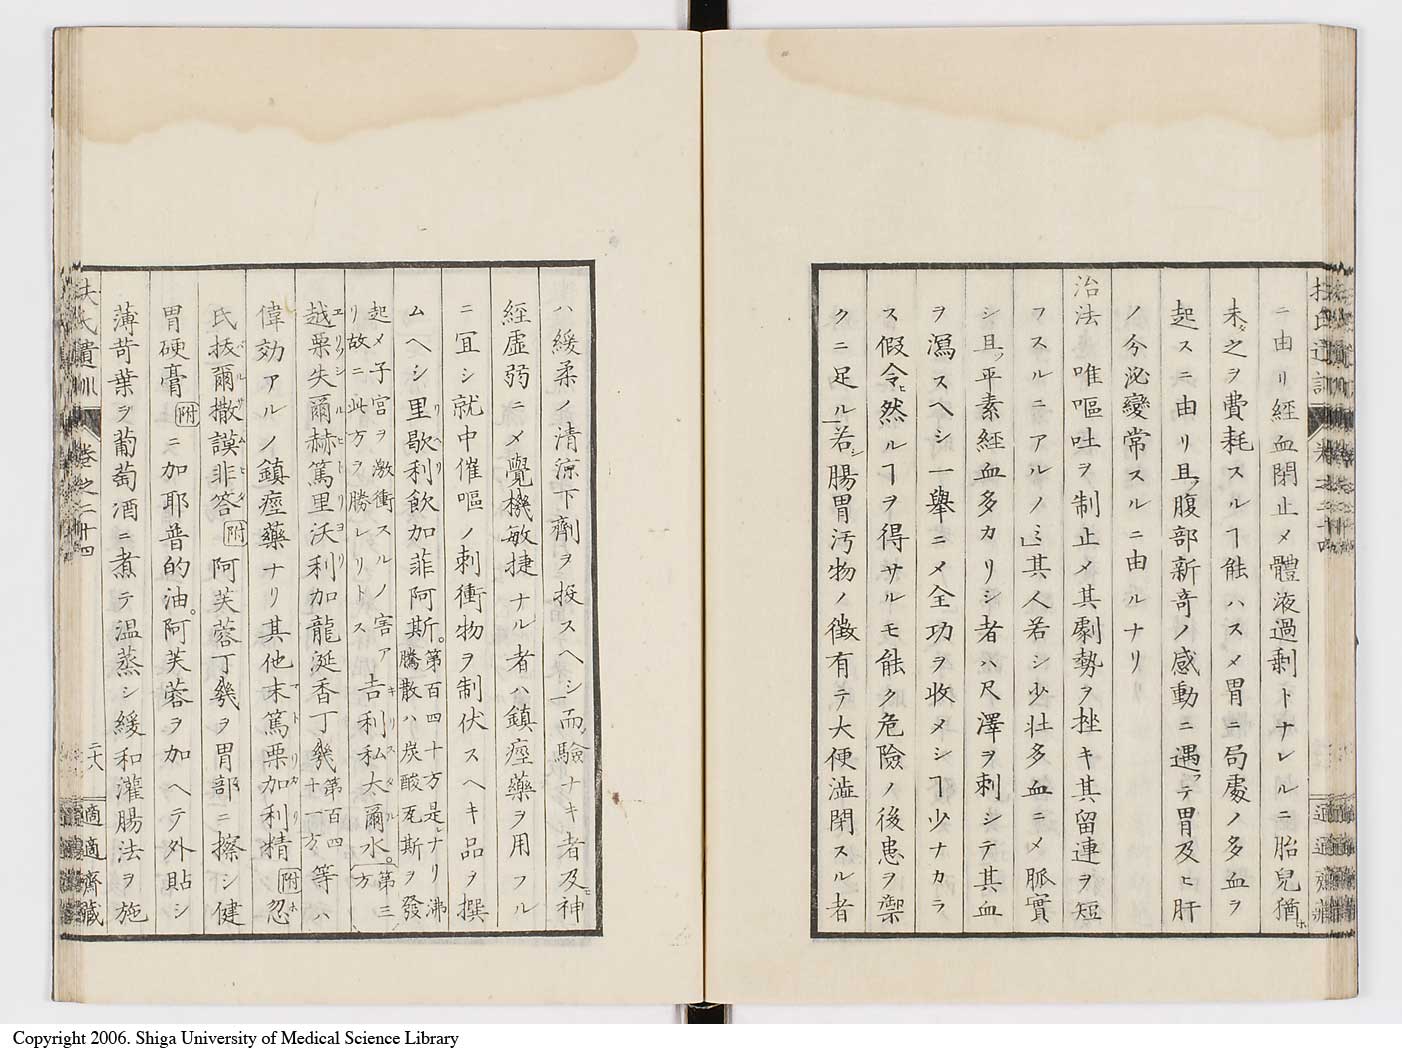 ニ由リ經血閉止メ體液過剩トナレルニ胎兒猶ホ
未タ之ヲ費耗スルヿ能ハスメ胃ニ局處ノ多血ヲ
起スニ由リ且ツ腹部新奇ノ感動ニ遇ッテ胃及ヒ肝
ノ分泌變常スルニ由ルナリ
治法 唯嘔吐ヲ制止メ其劇勢ヲ挫キ其留連ヲ短
フスルニアルノミ」其人若シ少壮多血ニメ脈實
シ且ツ平素經血多カリシ者ハ尺澤ヲ刺シテ其血
ヲ瀉スヘシ一擧ニメ全功ヲ收メシヿ少ナカラ
ス假令ヒ然ルヿヲ得サルモ能ク危險ノ後患ヲ禦
クニ足ル」若シ腸胃汚物ノ徴有テ大便澁閉スル者
ハ緩柔ノ清凉下劑ヲ投スヘシ」而ノ驗ナキ者及ヒ神
經虚弱ニメ覺機敏捷ナル者ハ鎮痙藥ヲ用フル
ニ宜シ就中催嘔ノ刺衝物ヲ制伏スヘキ品ヲ撰
ムヘシ里歇利飲加菲阿斯。第百四十方是レナリ沸騰散ハ炭酸瓦斯ヲ發
起メ子宮ヲ激衝スルノ害アリ故ニ此方ヲ勝レリトス吉利私太爾水。第三方
越栗失爾赫篤里沃利加龍涎香丁幾第百四十一方等ハ
偉効アルノ鎮痙藥ナリ其他末篤栗加利精附忍
氏抜爾撒謨非答附阿芙蓉丁幾ヲ胃部ニ擦シ健
胃硬膏附ニ加耶普的油。阿芙蓉ヲ加ヘテ外貼シ
薄苛葉ヲ葡萄酒ニ煮テ温蒸シ緩和灌腸法ヲ施
扶氏遺訓 卷之二十四 二十六 適適齋藏